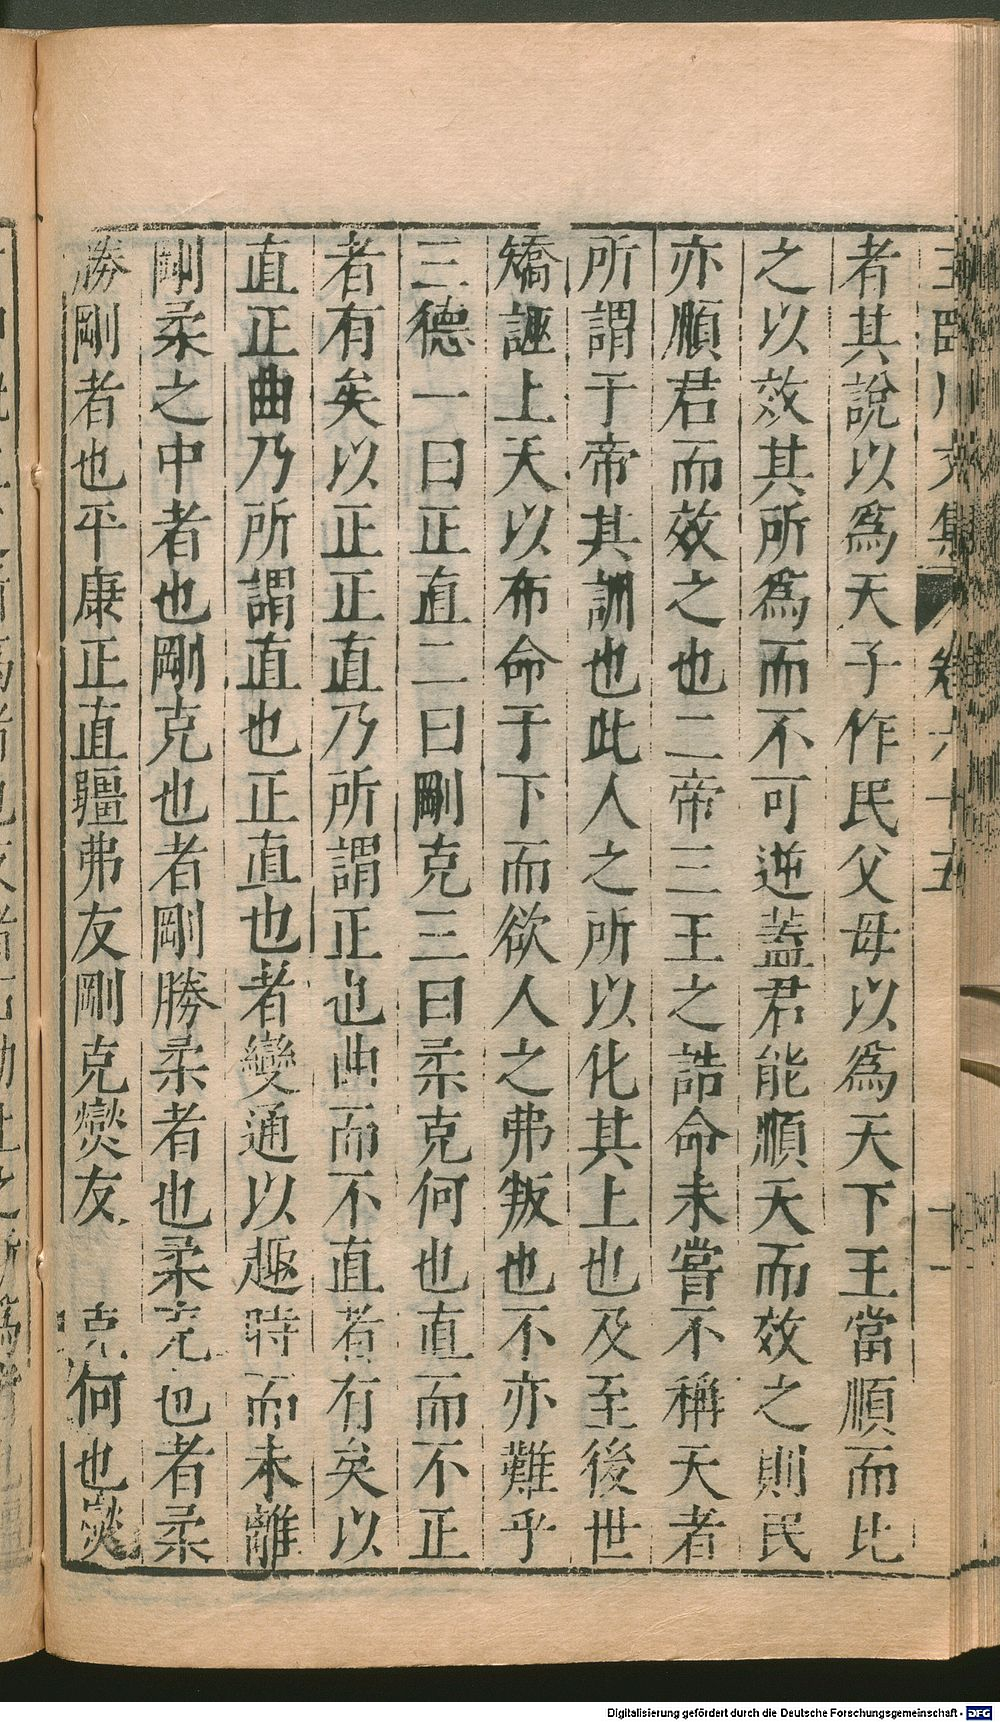 王臨川文集 卷六十五 十一
者其說以爲天子作民父母以爲天下王當順而比
之以效其所爲而不可逆蓋君能順天而效之則民
亦順君而效之也二帝三王之誥命未嘗不稱天者
所謂于帝其訓也此人之所以化其上也及至後世
矯誣上天以布命于下而欲人之弗叛也不亦難乎
三德一曰正直二曰剛克三曰柔克何也直而不正
者有矣以正正直乃所謂正也曲而不直者有矣以
直正曲乃所謂直也正直也者變通以趣時而未離
剛柔之中者也剛克也者剛勝柔者也柔克也者柔
勝剛者也平康正直彊弗友剛克燮友克何也燮
Digitalisierung gefördert durch die Deutsche Forschungsgemeinschaft - DFG